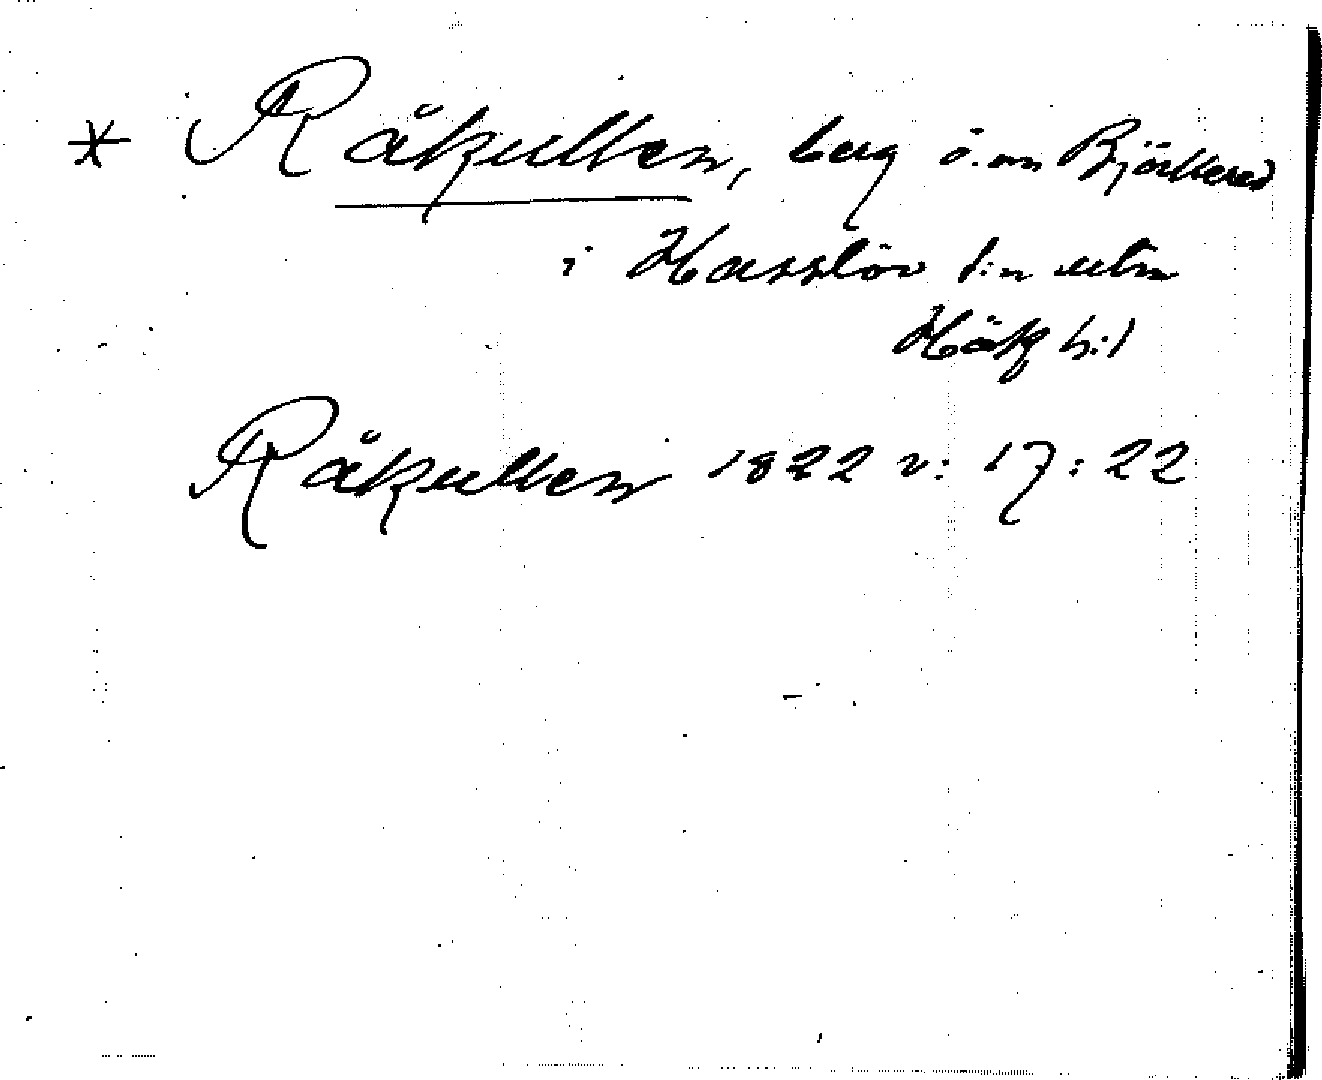 * Råkullen, berg ö. om Björkered
i Hasslöv s:n utm
Höks h:d
Råkullen 1822 v: 17:22